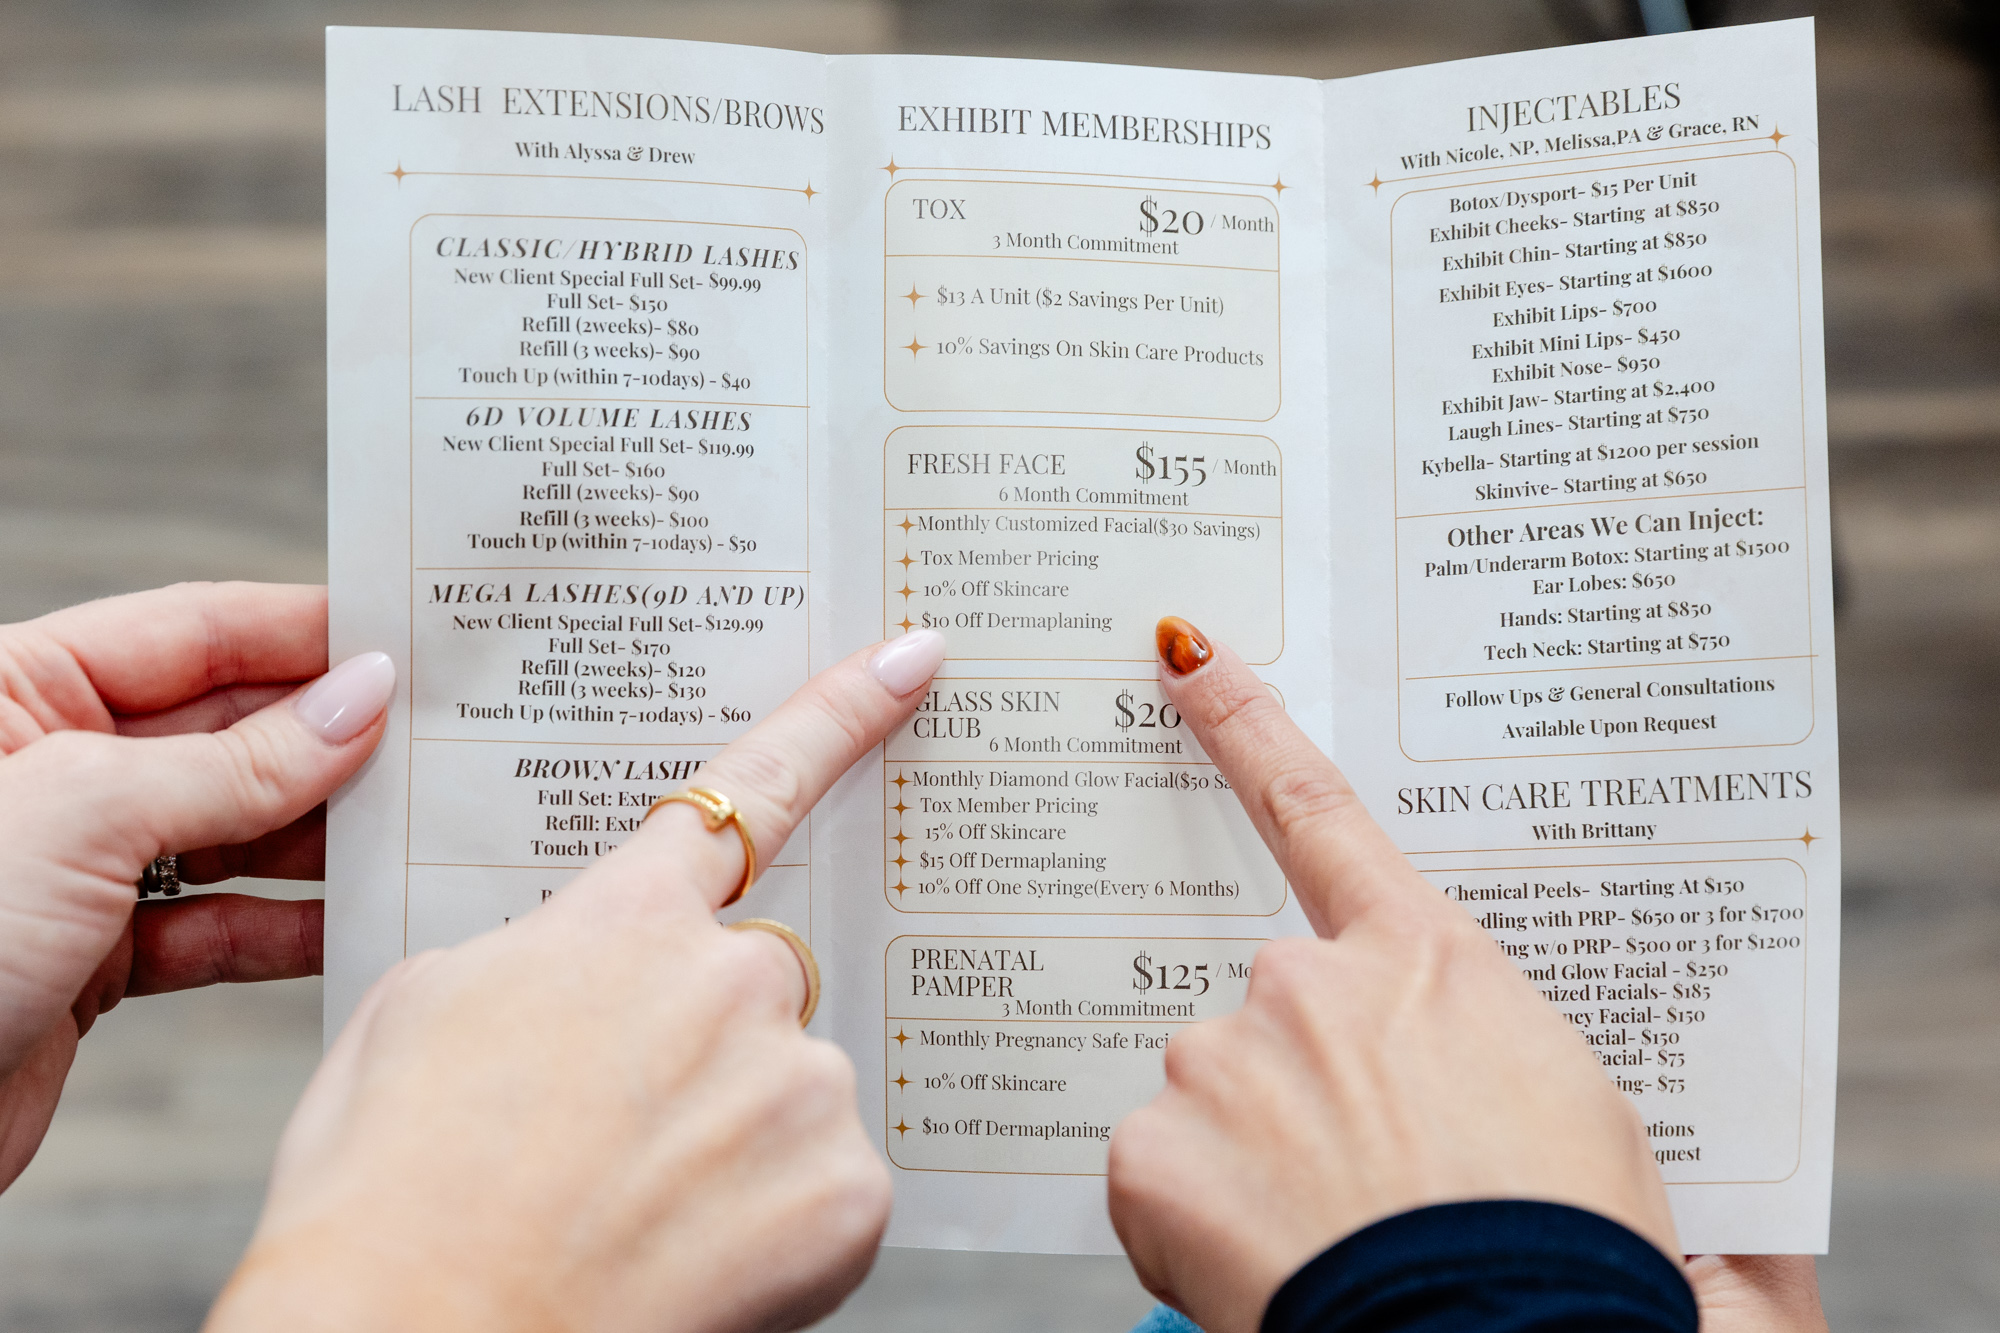 LASH EXTENSIONS/BROWS
With Alyssa & Drew
CLASSIC/HYBRID LASHES
New Client Special Full Set- $99.99
Full Set- $150
Refill (2weeks)- $80
Refill (3 weeks)- $90
Touch Up (within 7-10days) - $40
6D VOLUME LASHES
New Client Special Full Set- $119.99
Full Set- $160
Refill (2weeks)- $90
Refill (3 weeks)- $100
Touch Up (within 7-10days) - $50
MEGA LASHES(9D AND UP)
New Client Special Full Set- $129.99
Full Set- $170
Refill (2weeks)- $120
Refill (3 weeks)- $130
Touch Up (within 7-10days) - $60
BROWN
Full Set:
Refill:
Touch
EXHIBIT MEMBERSHIPS
TOX
$20 / Month
3 Month Commitment
$13 A Unit ($2 Savings Per Unit)
10% Savings On Skin Care Products
FRESH FACE
$155 / Month
6 Month Commitment
Monthly Customized Facial($30 Savings)
Tox Member Pricing
10% Off Skincare
$10 Off Dermaplaning
GLASS SKIN
CLUB
$20
6 Month Commitment
Monthly Diamond Glow Facial($50
Tox Member Pricing
15% Off Skincare
$15 Off Dermaplaning
10% Off One Syringe(Every 6 Months)
PRENATAL
PAMPER
$125 /
3 Month Commitment
Monthly Pregnancy Safe
10% Off Skincare
$10 Off Dermaplaning
INJECTABLES
With Nicole, NP, Melissa,PA & Grace, RN
Botox/Dysport- $15 Per Unit
Exhibit Cheeks- Starting at $850
Exhibit Chin- Starting at $850
Exhibit Eyes- Starting at $1600
Exhibit Lips- $700
Exhibit Mini Lips- $450
Exhibit Nose- $950
Exhibit Jaw- Starting at $2,400
Laugh Lines- Starting at $750
Kybella- Starting at $1200 per session
Skinvive- Starting at $650
Other Areas We Can Inject:
Palm/Underarm Botox: Starting at $1500
Ear Lobes: $650
Hands: Starting at $850
Tech Neck: Starting at $750
Follow Ups & General Consultations
Available Upon Request
SKIN CARE TREATMENTS
With Brittany
Chemical Peels- Starting At $150
with PRP- $650 or 3 for $1700
w/o PRP- $500 or 3 for $1200
Glow Facial - $250
Facials- $185
Facial- $150
$150
$75
$75